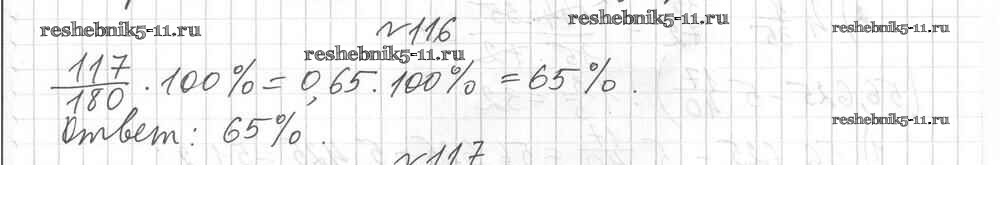 reshebnik5-11.ru №116 reshebnik5-11.ru reshebnik5-11.ru
reshebnik5-11.ru
117/180 · 100% = 0,65 · 100% = 65%.
Ответ: 65%. reshebnik5-11.ru
№117